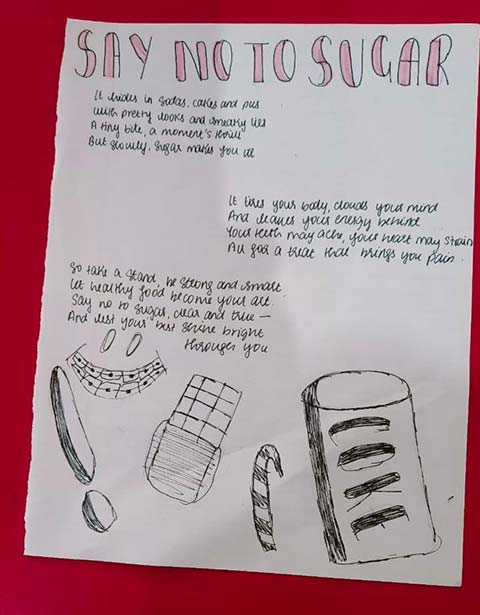 SAY NO TO SUGAR
It hides in sodas, cakes and pies
with pretty looks and sneaky lies
A tiny bite, a moment's thrill
But slowly, sugar makes you ill
It tires your body, clouds your mind
And leaves your energy behind
Your teeth may ache, your heart may strain
All for a treat that brings you pain.
So take a stand, be strong and smart
Let healthy food become your art.
Say no to sugar, clear and true—
And let your best shine bright
through you
COKE